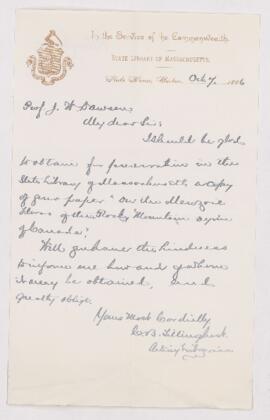 In the Service of the Commonwealth.
STATE LIBRARY OF MASSACHUSETTS.
State House, Boston, Oct 7, 1886
Prof J. W Dawson,
My dear Sir;
I should be glad
to obtain for preservation in the
State Library of Massachusetts a copy
of your paper "On the Mesozoic
Floras of the Rocky Mountain Region
of Canada."
Will you have the kindness
to inform me how and of whom
it may be obtained, and
greatly oblige.
Yours Most Cordially
C. B. Tillinghast
Acting Librarian